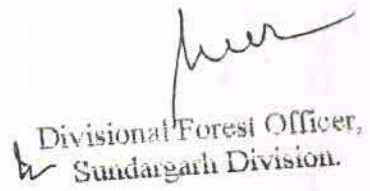 Divisional Forest Officer,
Sundargarh Division.